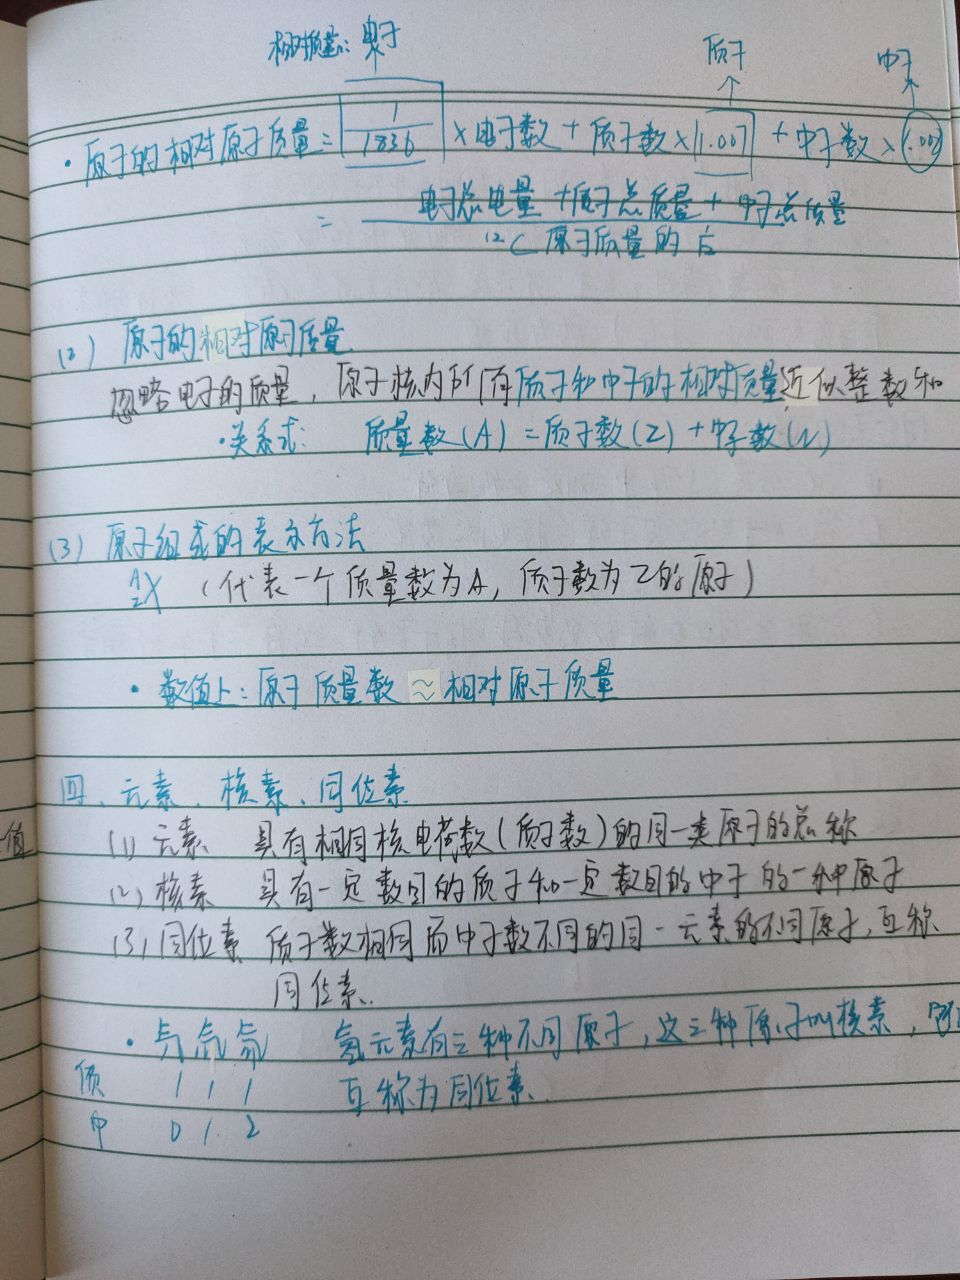 相对质量: 电子 质子 中子
· 原子的相对原子质量 = 1/1836 × 电子数 + 质子数 × 1.007 + 中子数 × 1.008
= 电子总电量 + 质子总质量 + 中子总质量
12C 原子质量的
(2) 原子的相对原子质量
忽略电子的质量, 原子核内所有质子和中子的相对质量近似整数和
·关系式: 质量数(A) = 质子数(Z) + 中子数(N)
(3) 原子组成的表示方法
A Z X (代表一个质量数为A, 质子数为Z的原子)
· 数值上: 原子质量数 ≈ 相对原子质量
四、元素、核素、同位素
值
(1) 元素 具有相同核电荷数(质子数)的同一类原子的总称
(2) 核素 具有一定数目的质子和一定数目的中子的一种原子
(3) 同位素 质子数相同而中子数不同的同一元素的不同原子, 互称
同位素.
· 氕 氘 氚 氢元素有三种不同原子, 这三种原子叫核素,
质 1 1 1 互称为同位素.
中 0 1 2